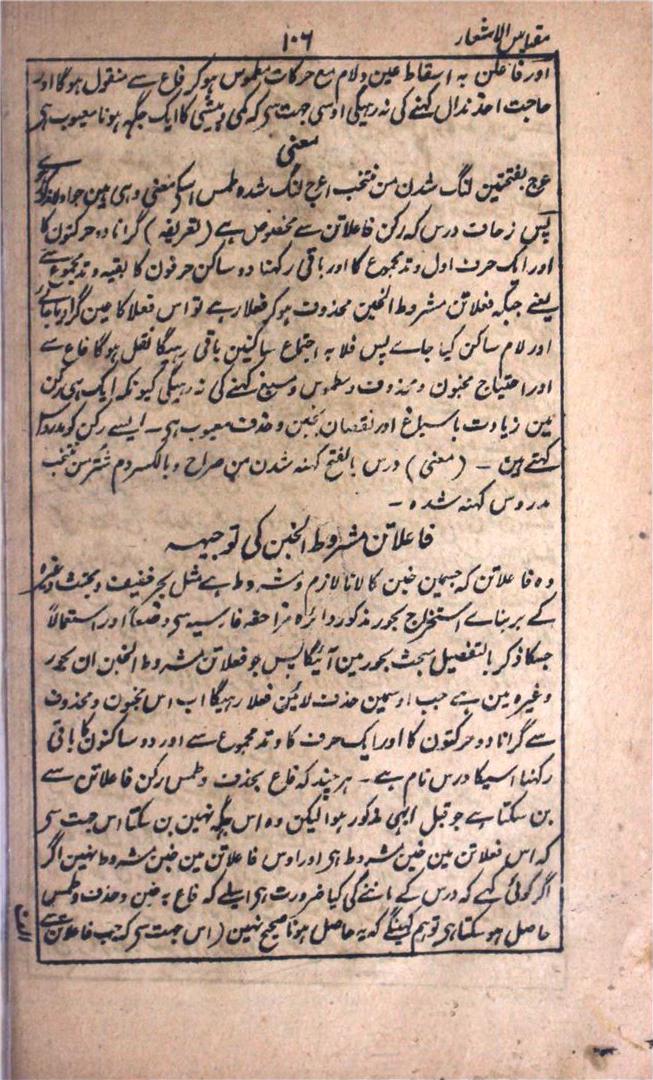 مقیاس الاشعار ١٠٦
اور فاعلن بہ اسقاط عین و لام مع حرکات مطموس ہوکر فاع سے منقول ہوگا اور
حاجت احذ ندال کہنے کی نہ رہیگی اوسی جہت سی کہ کمی و بیشی کا ایک جگہ ہونا معیوب ہی
معنی
عرج بفتحتین لنگ شدن من منتخب اعرج لنگ شدہ طمس اسکے معنی وہی ہین جو
پس زحاف درس کہ رکن فاعلاتن سے مخصوص ہے (تعریفہ) گرانا دو حرکتون کا
اور ایک حرف اول وتد مجموع کا اور باقی رکہنا دو ساکن حرفون کا بقیہ وتد مجموع سے
یعنے جبکہ فعلاتن مشروط الخبن محذوف ہوکر فعلا رہے تو اس فعلا کا عین گرا دیا جاے
اور لام ساکن کیا جاے پس فلا بہ اجتماع ساکنین باقی رہیگا نقل ہوگا فاع سے
اور احتیاج مخبون و محذوف و مطموس و مسبغ کہنے کی نہ رہیگی کیونکہ ایک ہی رکن
مین زیادت باسباغ اور نقصان بخبن و حذف معیوب ہی ۔ ایسے رکن کو مدروس
کہتے ہین ۔ (معنی) درس بالفتح کہنہ شدن من صراح و بالکسر دم شتر من منتخب
مدروس کہنہ شدہ ۔
فاعلاتن مشروط الخبن کی توجیہ
وہ فاعلاتن کہ جسمین خبن کا لانا لازم و مشروط ہے مثل بحر خفیف و مجتث وغیرہ
کے بربناے استخراج بحور مذکور دائرہ مزاحفہ فارسیہ سی وضعاً اور استعمالاً
جسکا ذکر بالتفصیل مبحث بحور مین آئیگا پس جو فعلاتن مشروط الخبن ان بحور
وغیرہ مین ہے جب اوسمین حذف لائین فعلا رہیگا اب اس مخبون و محذوف
سے گرانا دو حرکتون کا اور ایک حرف کا وتد مجموع سے اور دو ساکنون کا باقی
رکہنا اسیکا درس نام ہے ۔ ہرچند کہ فاع بحذف و طمس رکن فاعلاتن سے
بن سکتا ہے جو قبل ابھی مذکور ہوا لیکن وہ اس جگہ نہین بن سکتا اس جہت سی
کہ اس فعلاتن مین خبن مشروط ہی اور اوس فاعلاتن مین خبن مشروط نہین اگر
اگر کوئی کہے کہ درس کے ماننے کی کیا ضرورت ہی اسلیے کہ فاع بہ خبن و حذف و طمس
حاصل ہو سکتا ہی تو ہم کہینگے کہ یہ حاصل ہونا صحیح نہین (اس جہت سی کہ جب فاعلاتن سے